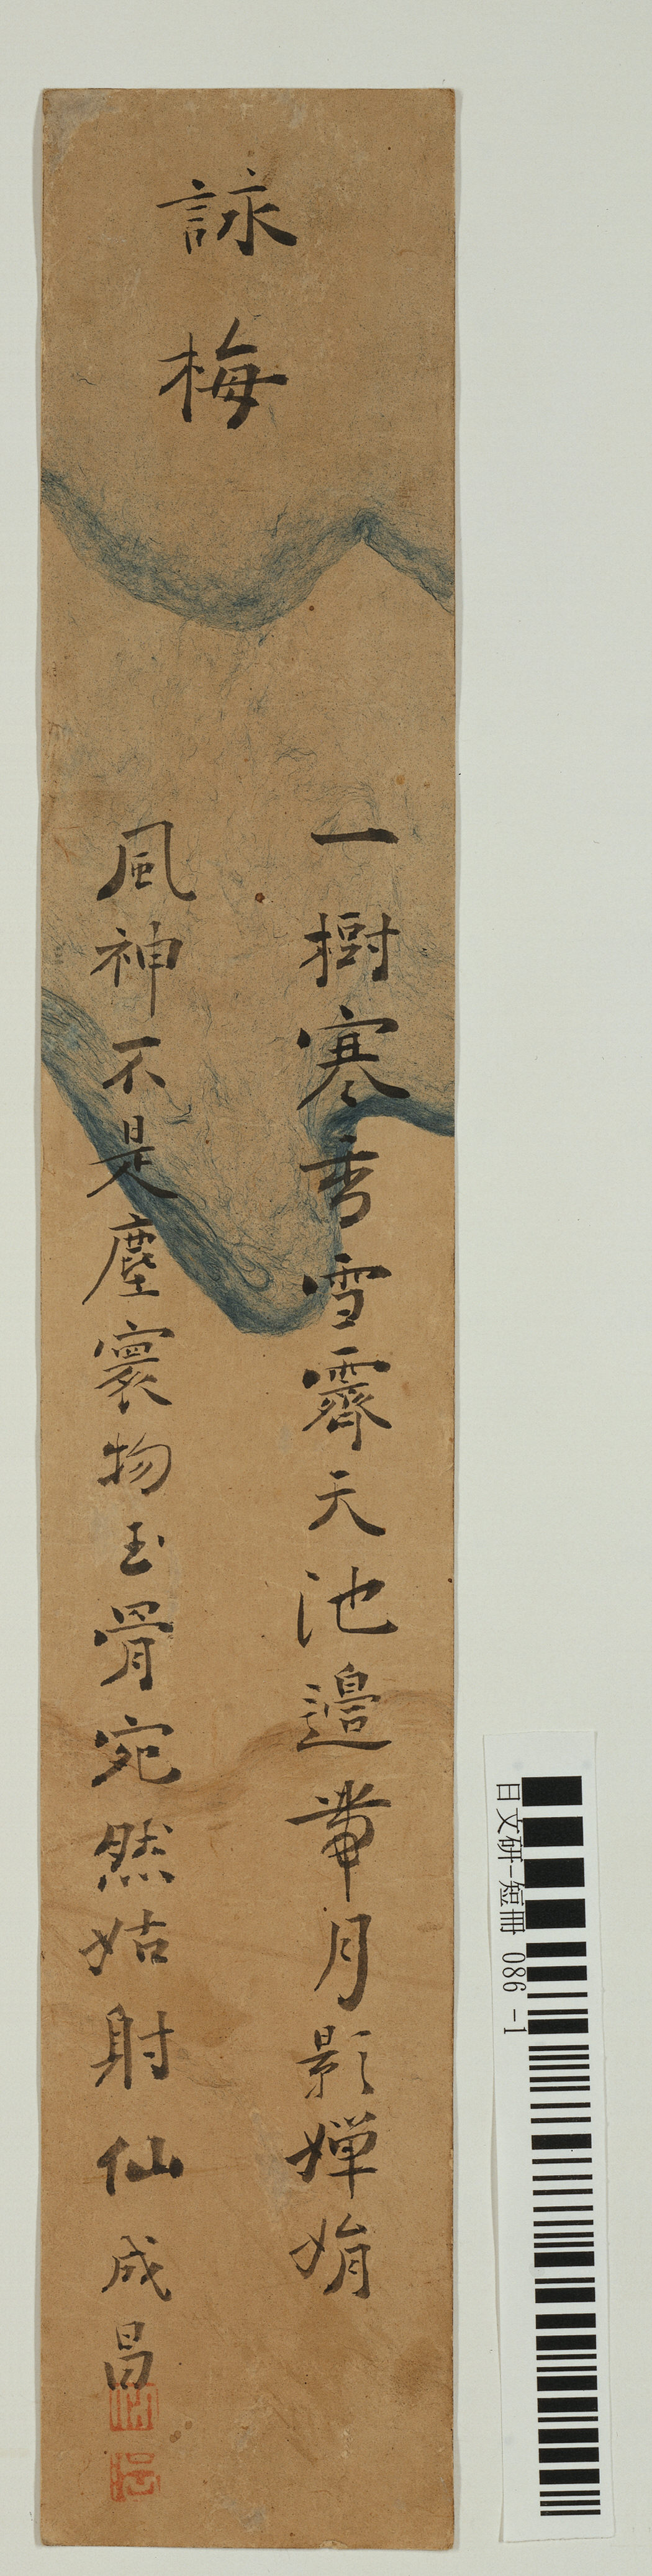 詠梅
一樹寒香雪霽天池邉帶月影嬋娟
風神不是塵寰物玉骨宛然姑射仙 成昌
日文研-短冊 086 -1